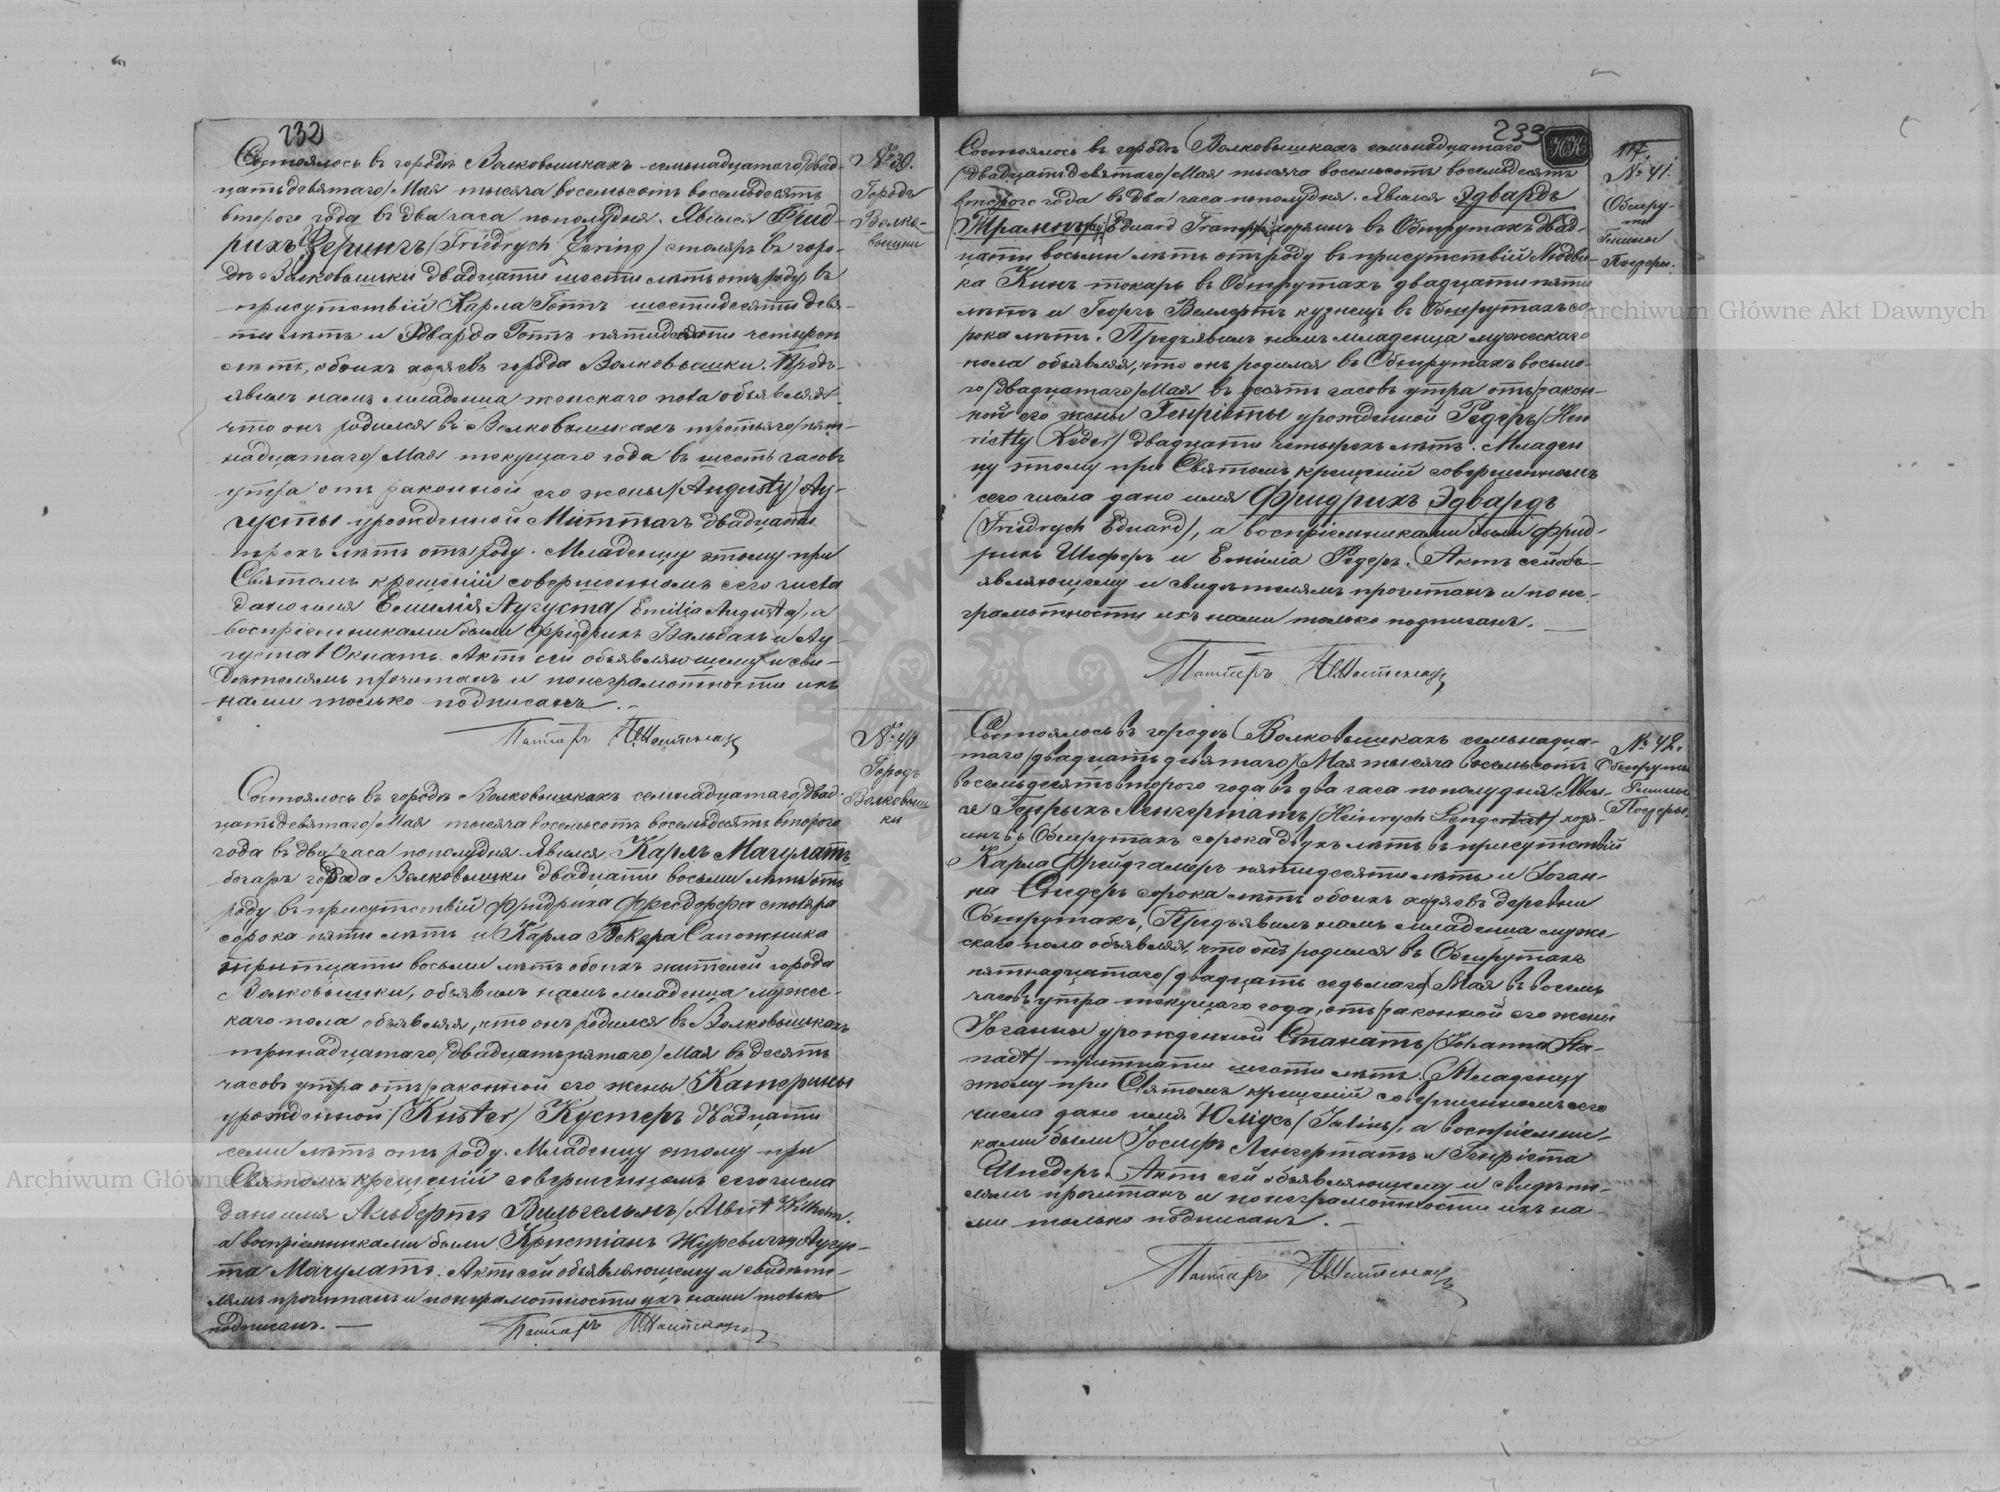 232
Состоялось въ городѣ Волковышкахъ семьнадцатаго/двад-
цать девятаго/ Мая тысяча восемьсотъ восемьдесятъ
второго года въ два часа пополудня. Явился Фрид-
рихъ Церингъ /Friedrych Zering/ столяръ въ горо-
дѣ Волковышки двадцати шести лѣтъ отъ роду, въ
присутствій Карла Готтъ шестидесяти девя-
ти лѣтъ и Эдварда Готтъ пятидесяти четырехъ
лѣтъ, обоихъ хозяевъ города Волковышки. Предъ-
явилъ намъ младенца женскаго пола объявляя
что онъ родился въ Волковышкахъ третьяго/пят-
надцатаго/ Мая текущаго года въ шесть часовъ
утра отъ законной его жены /Augusty/ Ау-
густы урожденной Миттагъ двадцати
трехъ лѣтъ отъ роду. Младенцу этому при
Святомъ крещеній совершенномъ сего числа
дано имя Емилія Аугуста /Emilia Augusta/, а
воспріемниками были Фридрихъ Вальбахъ и Ау-
густа Юкнатъ. Актъ сей объявляющему и сви-
дѣтелямъ прочитанъ и понеграмотности ихъ
нами только подписанъ.
Пасторъ
№ 39.
Городъ
Волко-
вышки
Состоялось въ городѣ Волковышкахъ семнадцатаго/двад-
цать девятаго/ Мая тысяча восемьсотъ восемьдесятъ второго
года въ два часа пополудня. Явился Карлъ Мачулатъ
города Волковышки двадцати восьми лѣтъ отъ
роду въ присутствій Фридриха Фредорфа столяра
сорока пяти лѣтъ и Карла Бекера Сапожника
тритцати восьми лѣтъ обоихъ жителей города
Волковышки, объявилъ намъ младенца мужес-
каго пола объявляя, что онъ родился въ Волковышкахъ
тринадцатаго/двадцать пятаго/ Мая въ десять
часовъ утра отъ законной его жены Катерины
урожденной /Kuster/ Кустеръ двадцати
семи лѣтъ отъ роду. Младенцу этому при
Святомъ крещеній совершенномъ сего числа
дано имя Альбертъ Вильгельмъ /Albert Wilhelm/.
а воспріемниками были Кристіанъ Журевичъ и Аугус-
та Мачулатъ. Актъ сей объявляющему и свидѣте-
лямъ прочитанъ и понеграмотности ихъ нами только
подписанъ.
Пасторъ
№ 40
Городъ
Волковыш
ки
233
НК
117.
Состоялось въ городѣ Волковышкахъ семьнадцатаго
/двадцать девятаго/ Мая тысяча восемьсотъ восемьдесятъ
второго года въ два часа пополудня. Явился Эдвардъ
Eduard хозяинъ въ Обшрутахъ двад-
цати восьми лѣтъ отъ роду въ присутствій Людви-
ка Кинъ токарь въ Обшрутахъ двадцати пяти
лѣтъ и Георгъ Веллертъ кузнецъ въ Обшрутахъ со-
рока лѣтъ. Предъявилъ намъ младенца мужескаго
пола объявляя, что онъ родился въ Обшрутахъ восьмо-
го/двадцатаго/ Мая въ десять часовъ утра отъ закон-
ной его жены Генріеты урожденной Редеръ /Hen
rietty Reder/ двадцати четырехъ лѣтъ. Младен
цу этому при Святомъ крещеній совершенномъ
сего числа дано имя Фридрихъ Эдвардъ
/Friedrych Eduard/, а воспріемниками были Фрид-
рихъ Шеферъ и Емилія Редеръ. Актъ сей объ-
являющему и свидѣтелямъ прочитанъ и поне-
грамотности ихъ нами только подписанъ.
Пасторъ
№ 41.
Обшру-
ты
Гмины
Поезеры.
Состоялось въ городѣ Волковышкахъ семьнадца-
таго/двадцать девятаго/ Мая тысяча восемьсотъ
восемьдесятъ второго года въ два часа пополудня. Яви-
лся Генрыхъ Ленгертатъ /Heinrych Lengertat/ хозя-
инъ въ Обшрутахъ сорока двухъ лѣтъ въ присутствій
Карла Фрейдгамеръ пятидесяти лѣтъ и Іоган-
на Снедеръ сорока лѣтъ обоихъ хозяевъ деревни
Обшрутахъ, Предъявилъ намъ младенца муже
скаго пола объявляя, что онъ родился въ Обшрутахъ
пятнадцатаго/двадцать седьмаго/ Мая въ восемь
часовъ утра текущаго года, отъ законной его жены
Іоганны урожденной Станатъ /Johanna Sta-
nadt/ тритцати шести лѣтъ. Младенцу
этому при Святомъ крещеній совершенномъ сего
числа дано имя Юліусъ /Julius/, а воспріемни-
ками были Іосифъ Ленгертатъ и Генріета
Шнедеръ. Актъ сей объявляющему и свидѣте-
лямъ прочитанъ и понеграмотности ихъ на-
ми только подписанъ.
Пасторъ
№ 42.
Обшруты
Гмины
Поезеры.
Archiwum Główne Akt Dawnych
Archiwum Główne Akt Dawnych